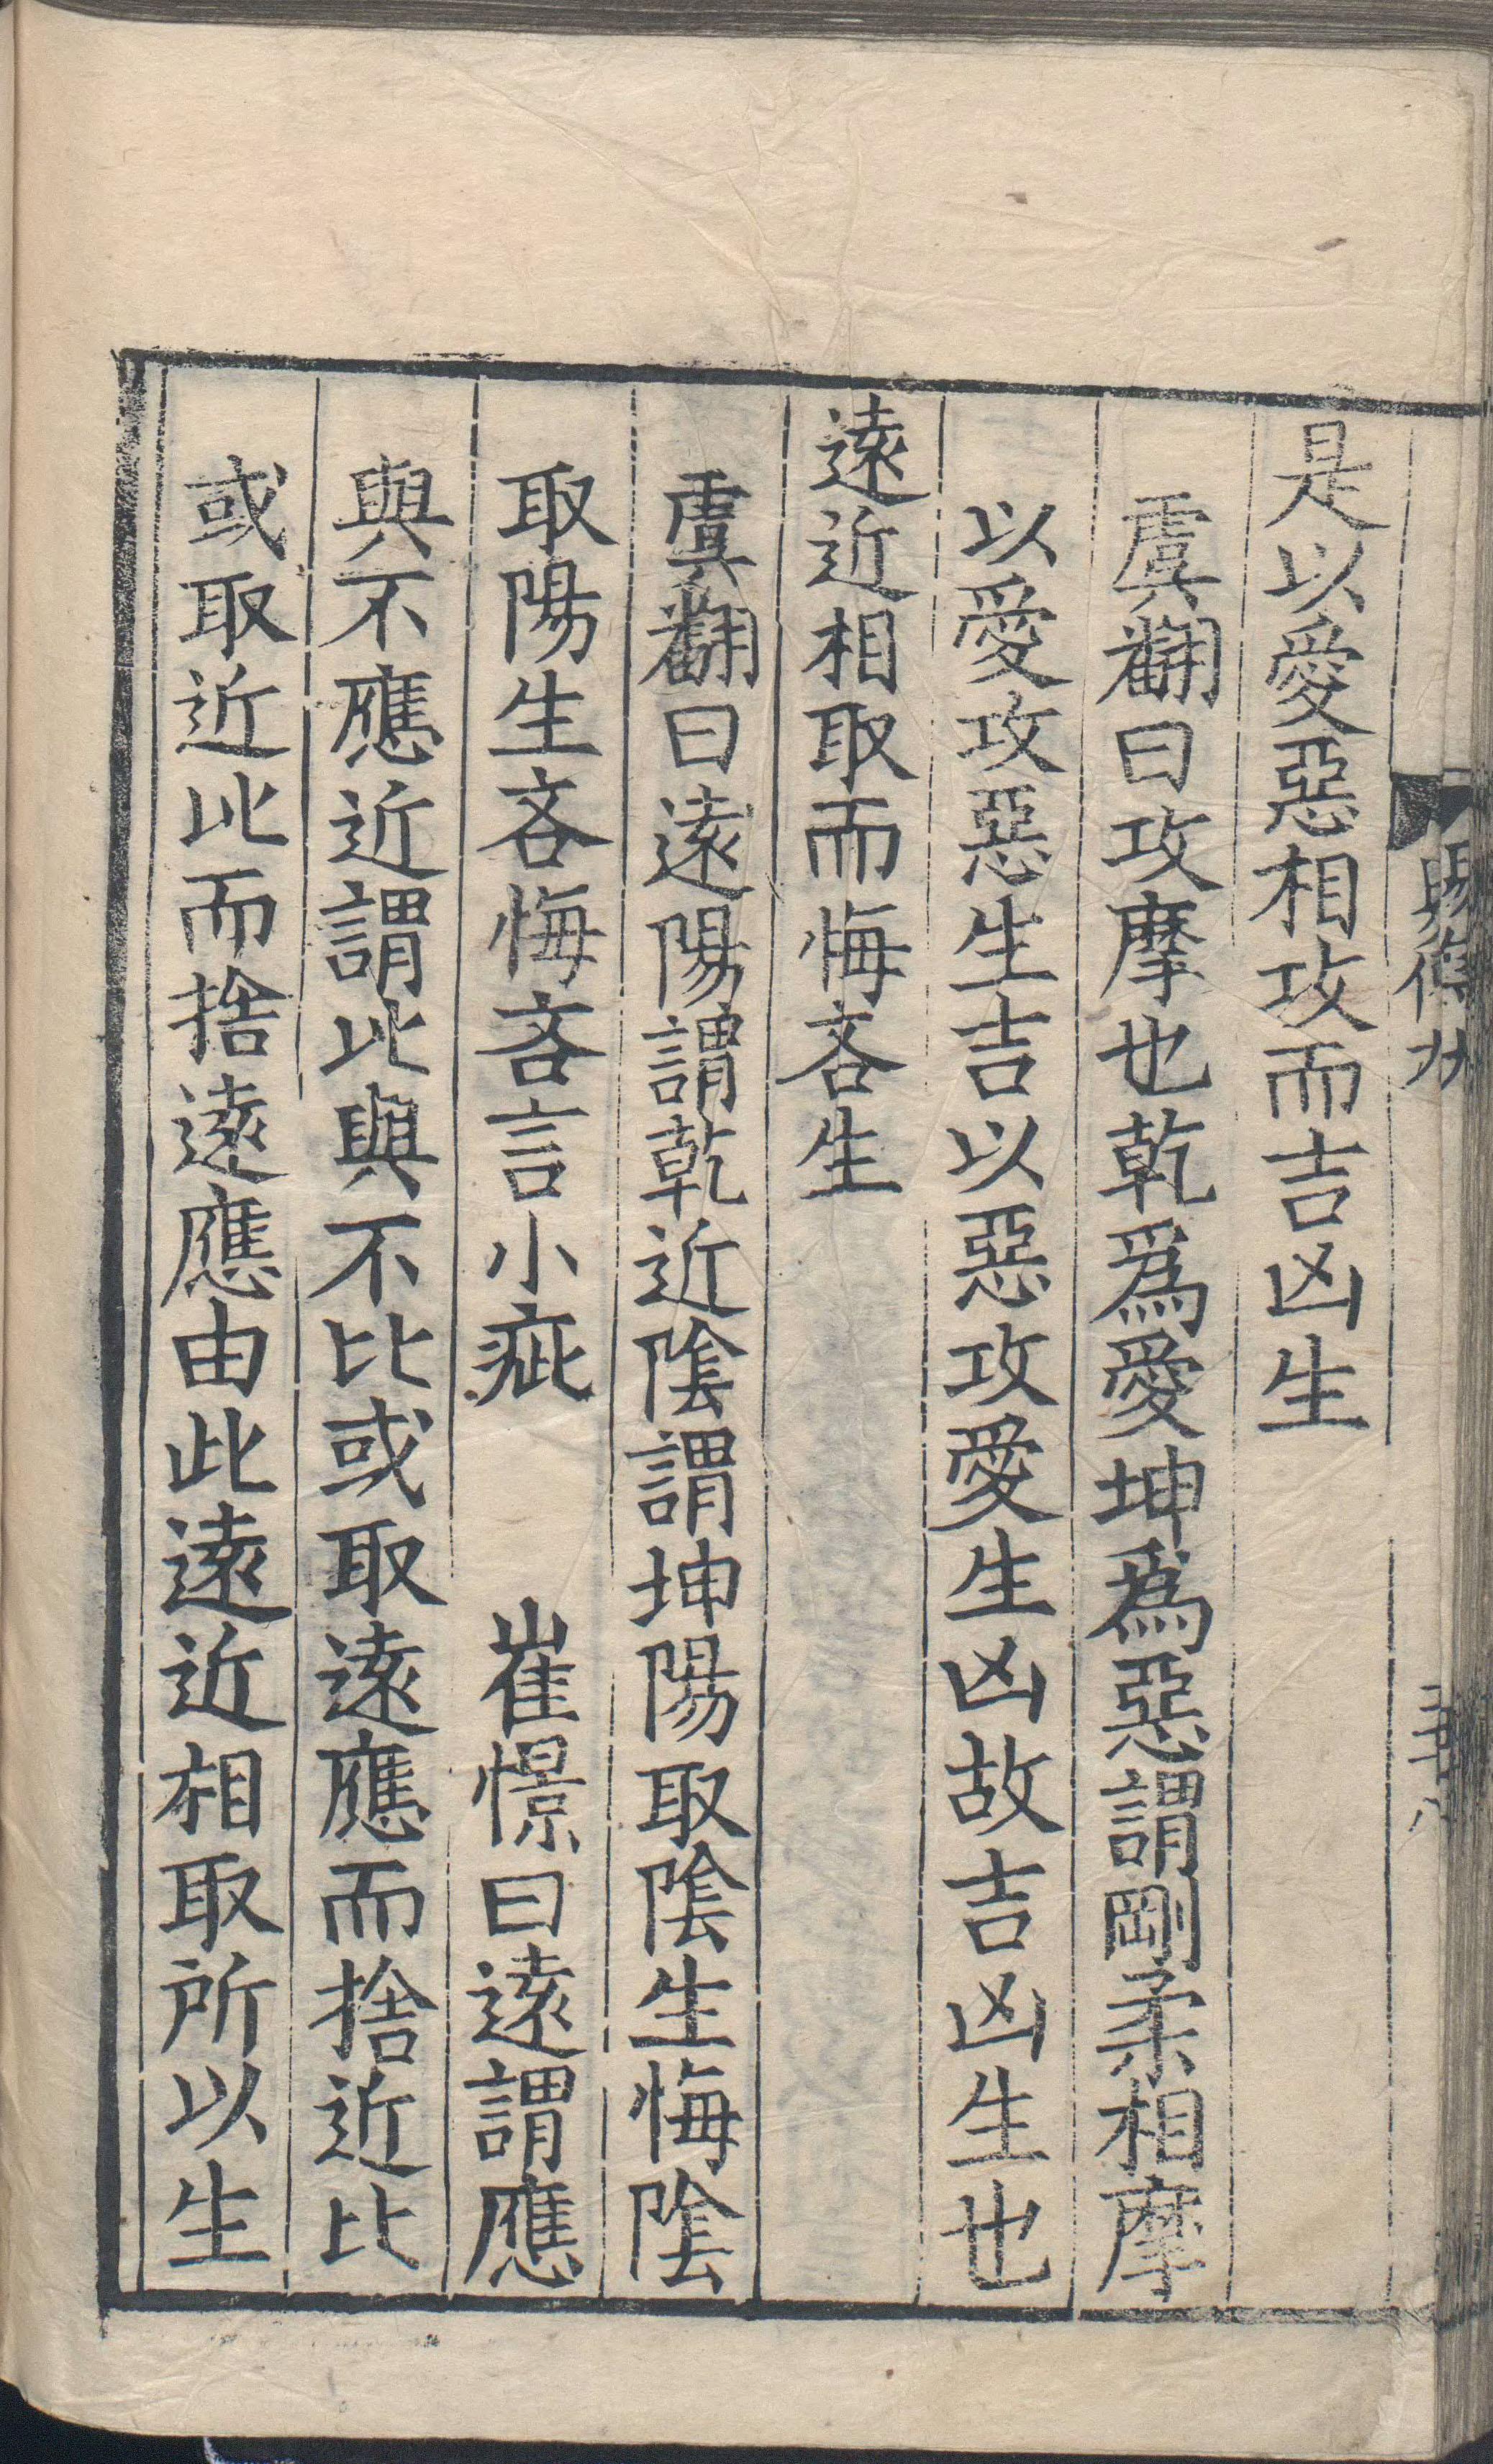 是以愛惡相攻而吉凶生
虞翻曰攻摩也乾爲愛坤爲惡謂剛柔相摩
以愛攻惡生吉以惡攻愛生凶故吉凶生也
遠近相取而悔吝生
虞翻曰遠陽謂乾近陰謂坤陽取陰生悔陰
取陽生吝悔吝言小疵　崔憬曰遠謂應
與不應近謂比與不比或取遠應而捨近比
或取近比而捨遠應由此遠近相取所以生